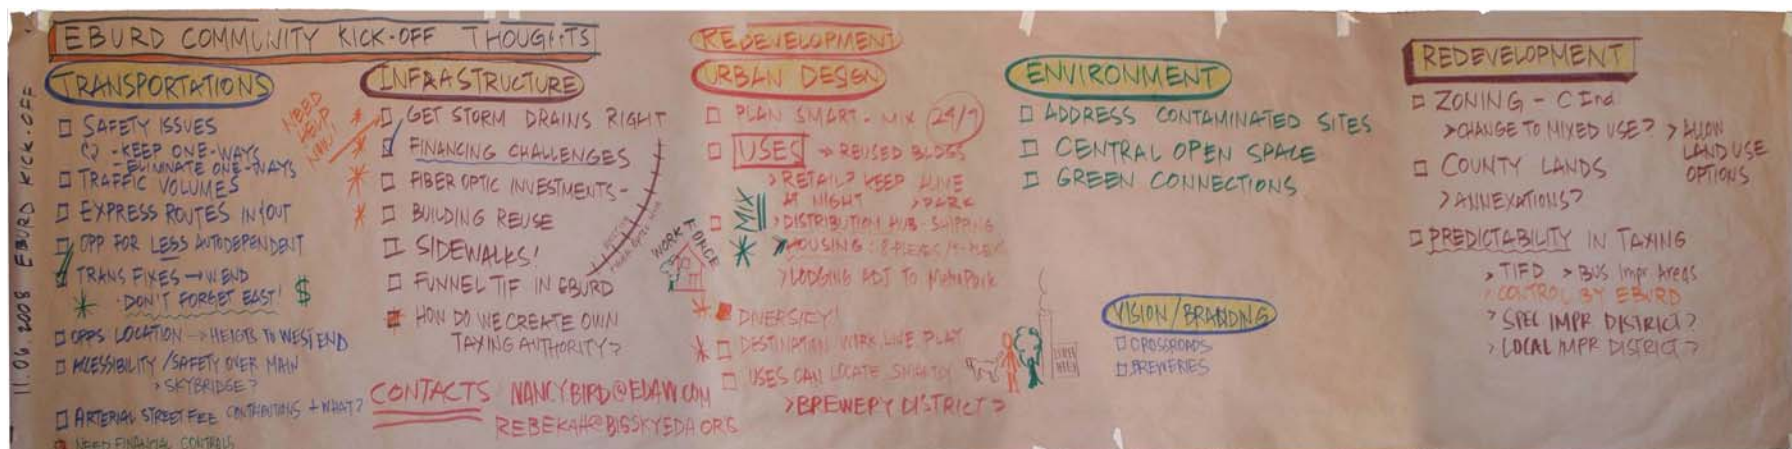 11.06.2008 EBURD KICK-OFF
EBURD COMMUNITY KICK-OFF THOUGHTS
TRANSPORTATIONS
SAFETY ISSUES
- KEEP ONE-WAYS
- ELIMINATE ONE-WAYS
TRAFFIC VOLUMES
EXPRESS ROUTES IN/OUT
OPP FOR LESS AUTODEPENDENT
TRANS FIXES → W.END
DON'T FORGET EAST! $
OPPS LOCATION → HEIGTS TO WEST END
ACCESSIBILITY / SAFETY OVER MAIN
> SKYBRIDGE?
ARTERIAL STREET FEE CONTRIBUTIONS + WHAT?
NEED FINANCIAL CONTROLS
NEED HELP NOW!
INFRASTRUCTURE
GET STORM DRAINS RIGHT
FINANCING CHALLENGES
FIBER OPTIC INVESTMENTS -
BUILDING REUSE
SIDEWALKS!
FUNNEL TIF IN EBURD
HOW DO WE CREATE OWN
TAXING AUTHORITY?
CONTACTS NANCY.BIRD@EDAW.COM
REBEKAH@BIGSKYEDA.ORG
REDEVELOPMENT
URBAN DESIGN
PLAN SMART - MIX 24/7
USES → REUSED BLDGS
> RETAIL? KEEP ALIVE
AT NIGHT > PARK
MIX
> DISTRIBUTION HUB - SHIPPING
WORK FORCE
> HOUSING: 8-PLEXES /
> LODGING ADJ TO MetraPark
DIVERSIFY!
DESTINATION WORK LIVE PLAY
USES CAN LOCATE
> BREWERY DISTRICT?
ENVIRONMENT
ADDRESS CONTAMINATED SITES
CENTRAL OPEN SPACE
GREEN CONNECTIONS
VISION/BRANDING
CROSSROADS
BREWERIES
REDEVELOPMENT
ZONING - C Ind
> CHANGE TO MIXED USE? > ALLOW
LAND USE
OPTIONS
COUNTY LANDS
> ANNEXATIONS?
PREDICTABILITY IN TAXING
> TIFD > BUS Impr Areas
> CONTROL BY EBURD
> SPEC IMPR DISTRICT?
> LOCAL IMPR DISTRICT?